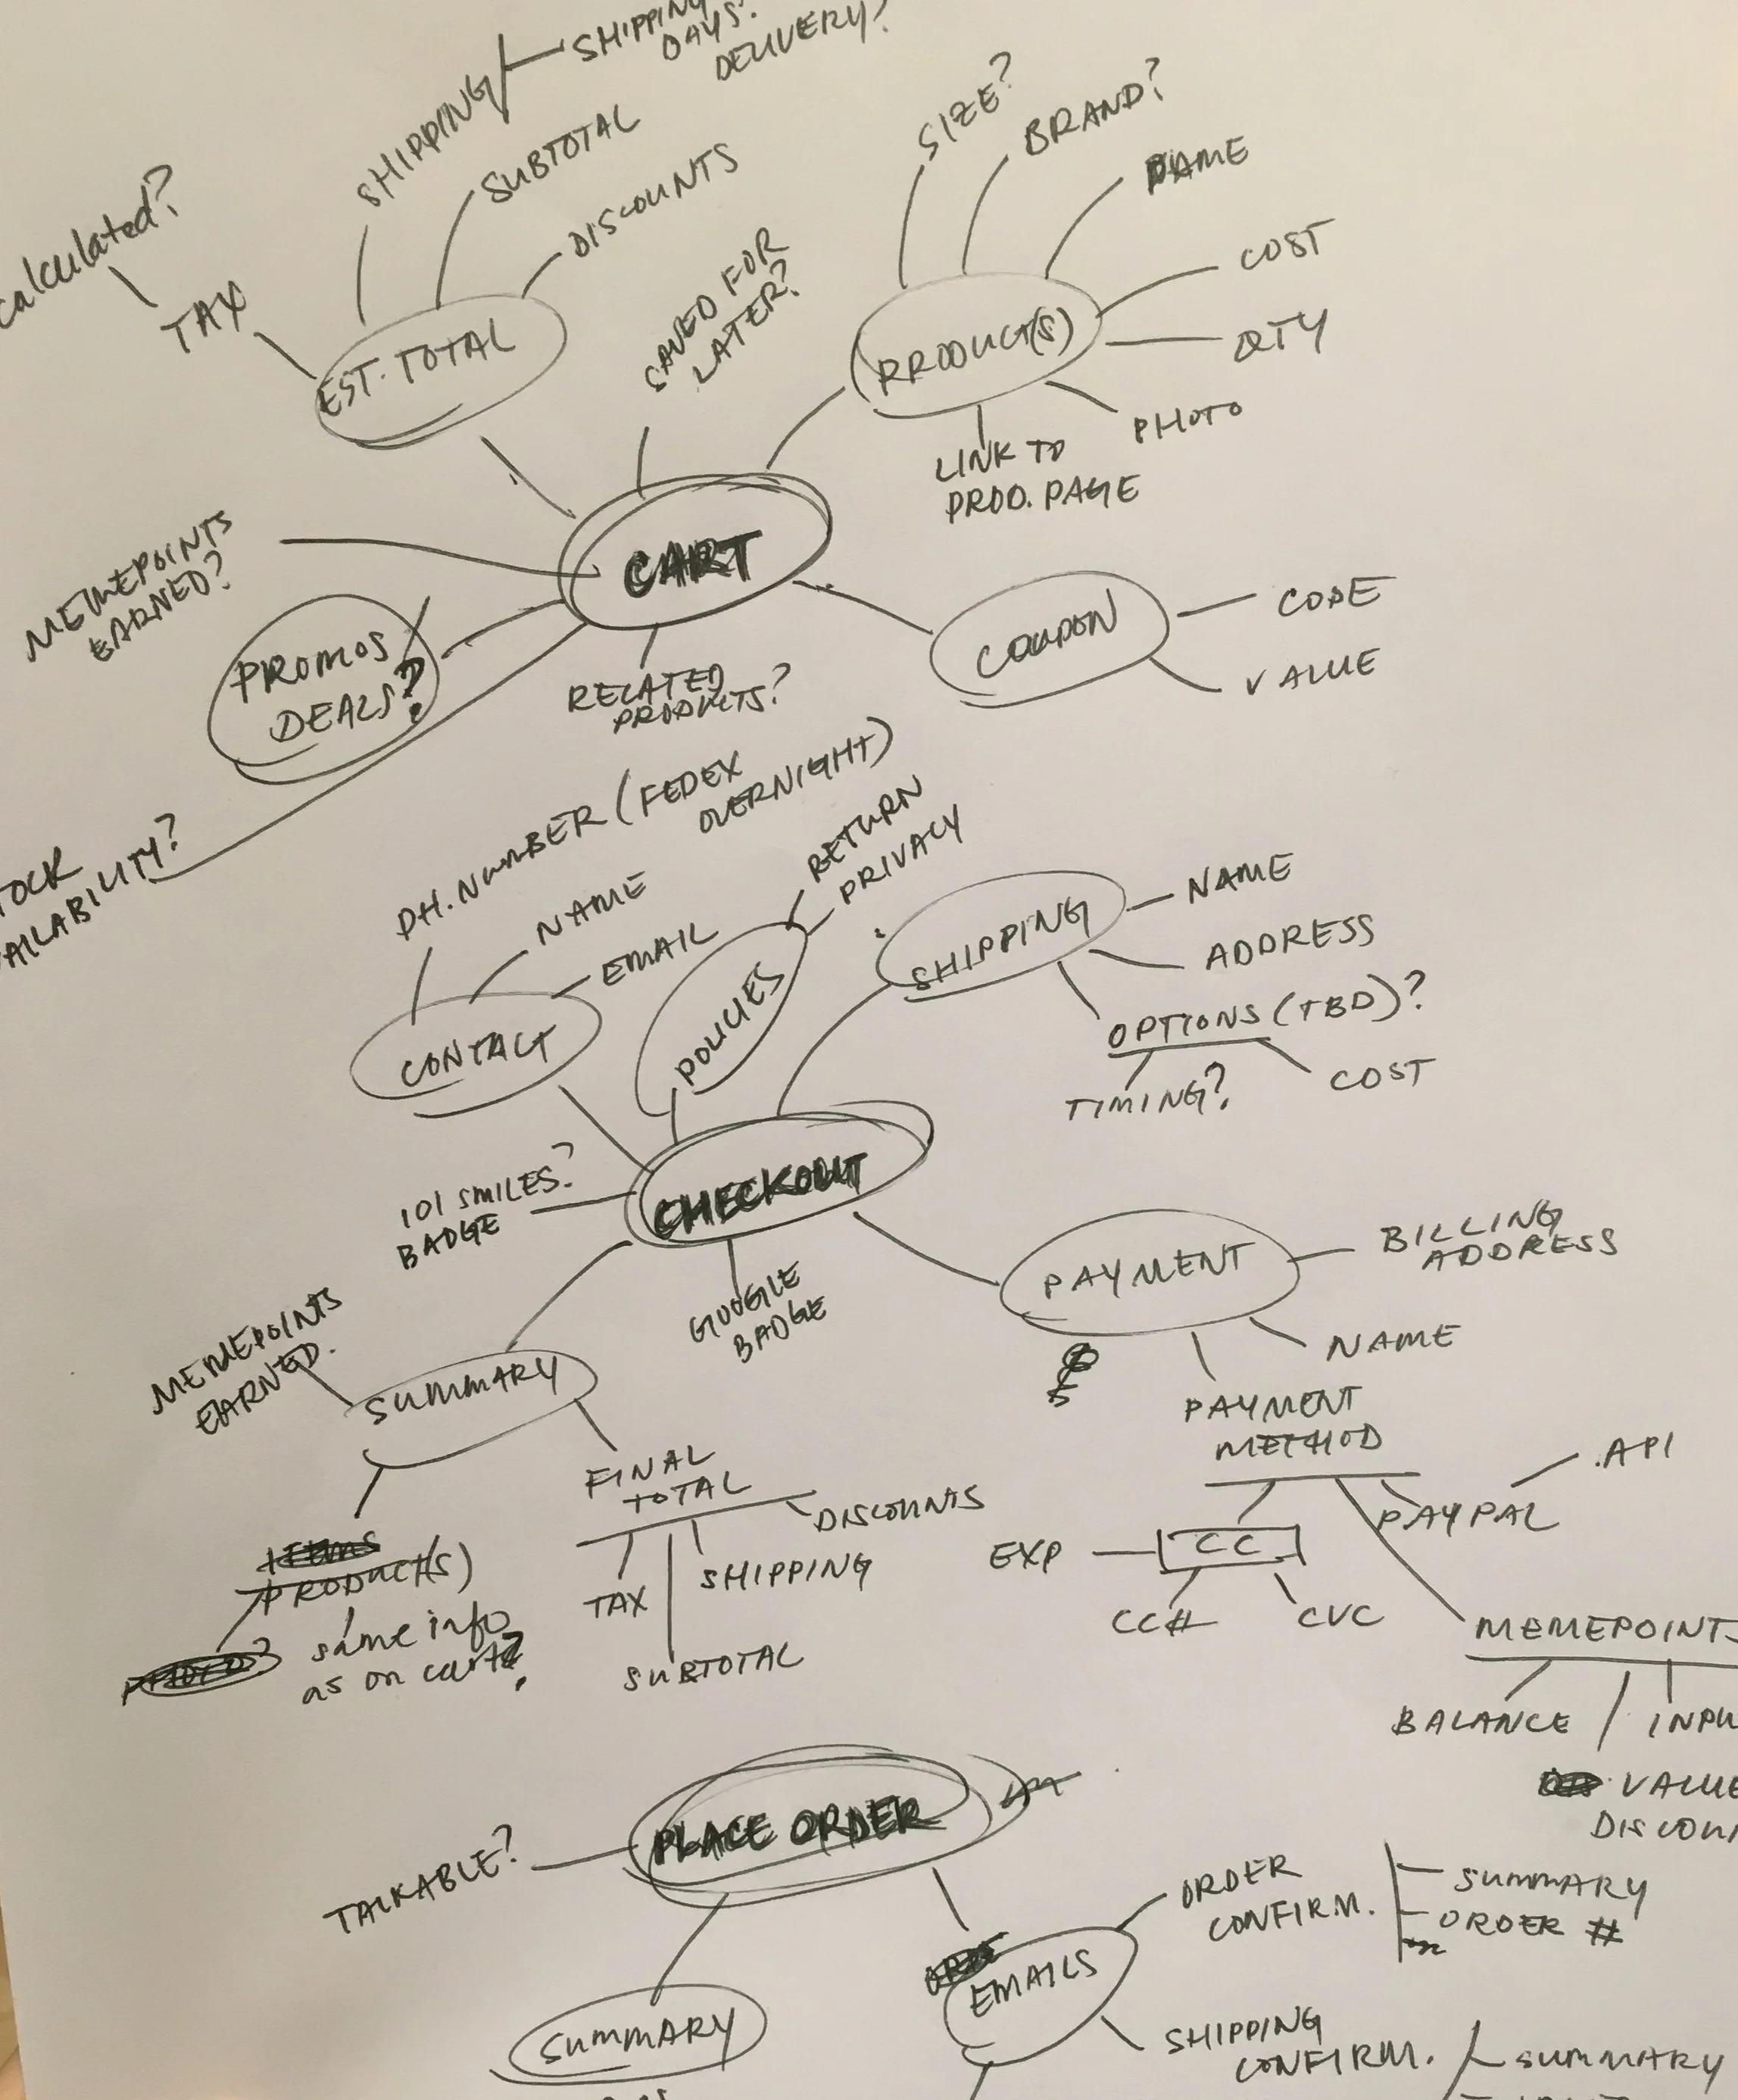 SHIPPING
SHIPPING
DAYS?
DELIVERY?
SUBTOTAL
DISCOUNTS
calculated?
TAX
EST. TOTAL
SAVED FOR
LATER?
SIZE?
BRAND?
NAME
COST
QTY
PHOTO
LINK TO
PROD. PAGE
PRODUCT(S)
CART
MEMEPOINTS
EARNED?
PROMOS/
DEALS?
RELATED
PRODUCTS?
COUPON
CODE
VALUE
TOCK
AILABILITY?
PH. NUMBER (FEDEX
OVERNIGHT)
NAME
EMAIL
CONTACT
RETURN
PRIVACY
POLICIES
SHIPPING
NAME
ADDRESS
OPTIONS (TBD)?
TIMING?
COST
CHECKOUT
101 SMILES?
BADGE
GOOGLE
BADGE
PAYMENT
BILLING
ADDRESS
NAME
PAYMENT
METHOD
PAYPAL
API
CC
EXP
CC#
CVC
MEMEPOINTS
BALANCE
INPU
VALUE
DISCOUN
MEMEPOINTS
EARNED.
SUMMARY
FINAL
TOTAL
DISCOUNTS
SHIPPING
TAX
SUBTOTAL
PRODUCT(S)
same info
as on cart?
PLACE ORDER
TALKABLE?
SUMMARY
EMAILS
ORDER
CONFIRM.
SUMMARY
ORDER #
SHIPPING
CONFIRM.
SUMMARY